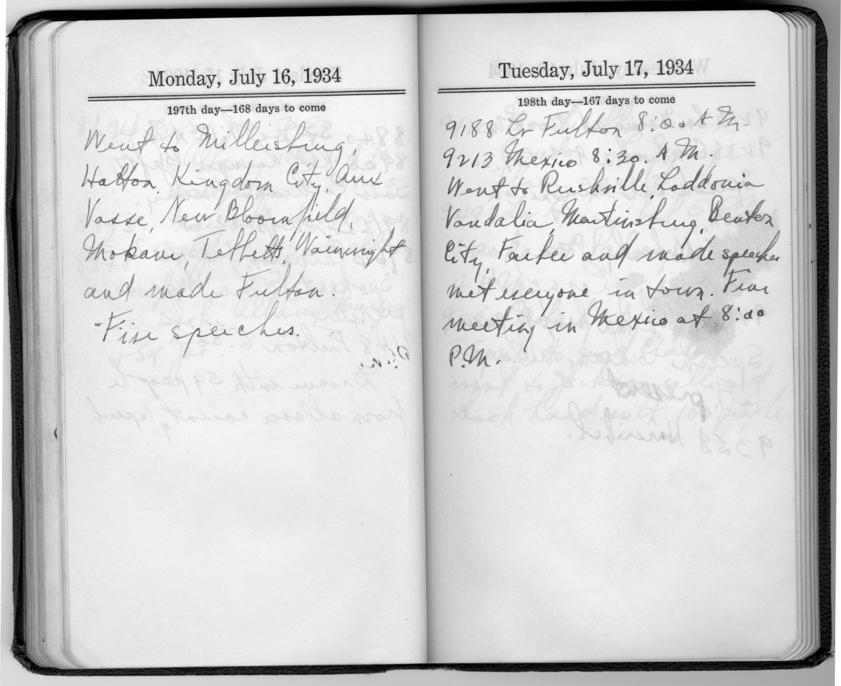 Monday, July 16, 1934
197th day—168 days to come
Went to Millersburg,
Hatton, Kingdom City, Aux
Vasse, New Bloomfield,
Mokane, Tebbetts, Wainwright
and made Fulton.
speeches.
Tuesday, July 17, 1934
198th day—167 days to come
9188 Lv Fulton 8:00 A.M.
9213 Mexico 8:30. A.M.
Went to Rushville, Laddonia
Vandalia, Martinsburg, Benton
City, Farber and made speeches
met everyone in town. Fine
meeting in Mexico at 8:00
P.M.